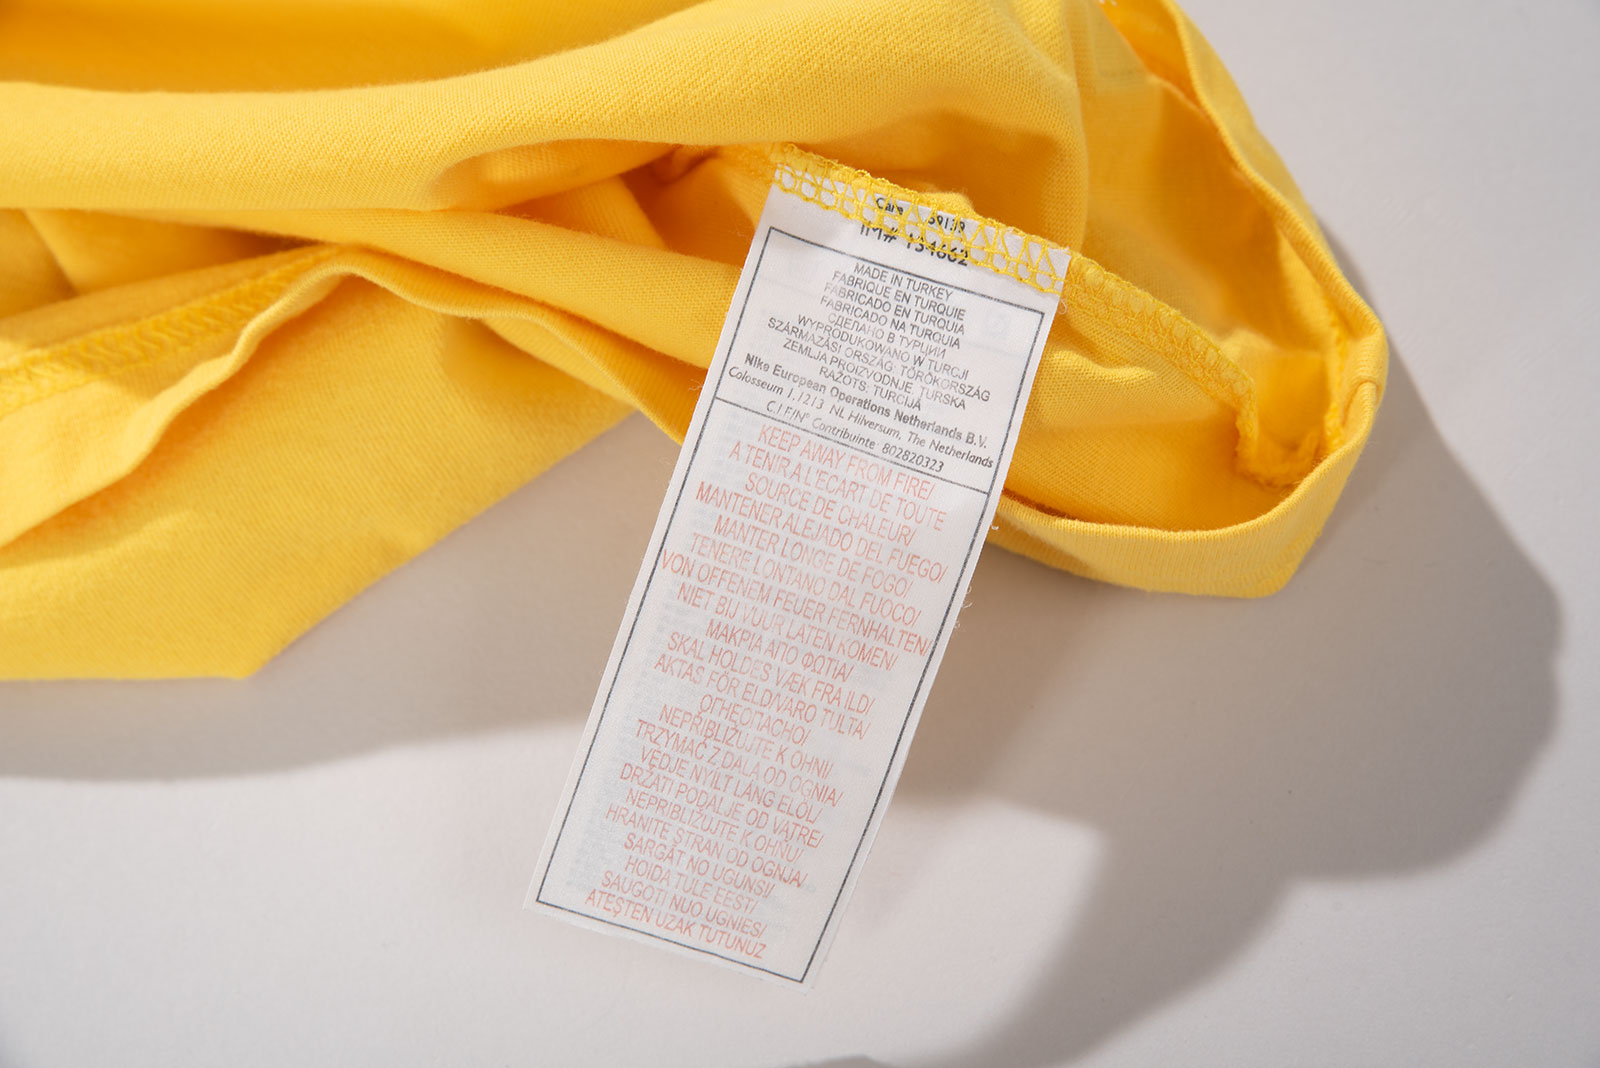 Care 59139
IM# 134662
MADE IN TURKEY
FABRIQUE EN TURQUIE
FABRICADO EN TURQUIA
FABRICADO NA TURQUIA
СДЕЛАНО В ТУРЦИИ
WYPRODUKOWANO W TURCJI
SZÁRMAZÁSI ORSZÁG: TÖRÖKORSZÁG
ZEMLJA PROIZVODNJE: TURSKA
RAŽOTS: TURCIJĀ
Nike European Operations Netherlands B.V.
Colosseum 1,1213 NL Hilversum, The Netherlands
C.I.F/N° Contribuinte: 802820323
KEEP AWAY FROM FIRE/
A TENIR A L'ECART DE TOUTE
SOURCE DE CHALEUR/
MANTENER ALEJADO DEL FUEGO/
MANTER LONGE DE FOGO/
TENERE LONTANO DAL FUOCO/
VON OFFENEM FEUER FERNHALTEN/
NIET BIJ VUUR LATEN KOMEN/
ΜΑΚΡΙΑ ΑΠΟ ΦΩΤΙΑ/
SKAL HOLDES VÆK FRA ILD/
AKTAS FÖR ELD/VARO TULTA/
ОГНЕОПАСНО/
NEPRIBLIŽUJTE K OHNI/
TRZYMAĆ Z DALA OD OGNIA/
VÉDJE NYILT LÁNG ELŐL/
DRŽATI PODALJE OD VATRE/
NEPRIBLIŽUJTE K OHŇU/
HRANITE STRAN OD OGNJA/
SARGĀT NO UGUNS/
HOIDA TULE EEST/
SAUGOTI NUO UGNIES/
ATEŞTEN UZAK TUTUNUZ